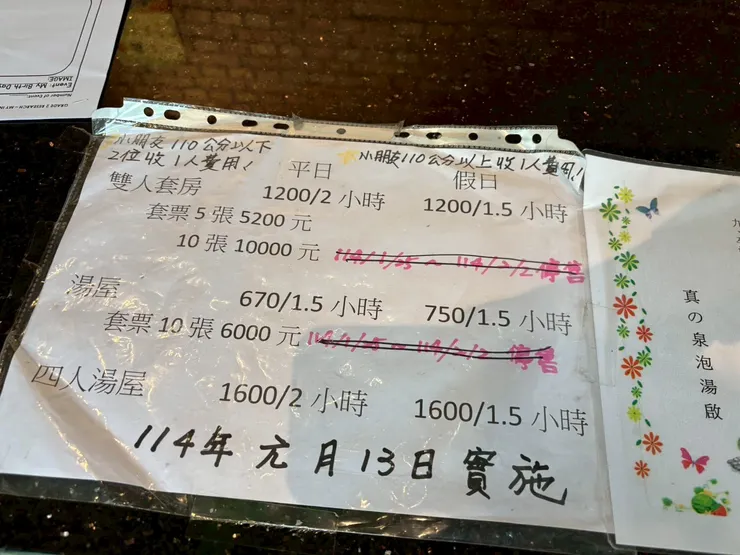 GRADE 2 RESEARCH - MY IN
Number of Event:
Event: My Birth Day
IMAGE:
小朋友110公分以下
2位收1人費用!
小朋友110公分以上收1人費用!
平日 假日
雙人套房 1200/2 小時 1200/1.5 小時
套票 5 張 5200 元
10 張 10000 元
湯屋 670/1.5 小時 750/1.5 小時
套票 10 張 6000 元
四人湯屋 1600/2 小時 1600/1.5 小時
114年元月13日實施
真の泉泡湯啟